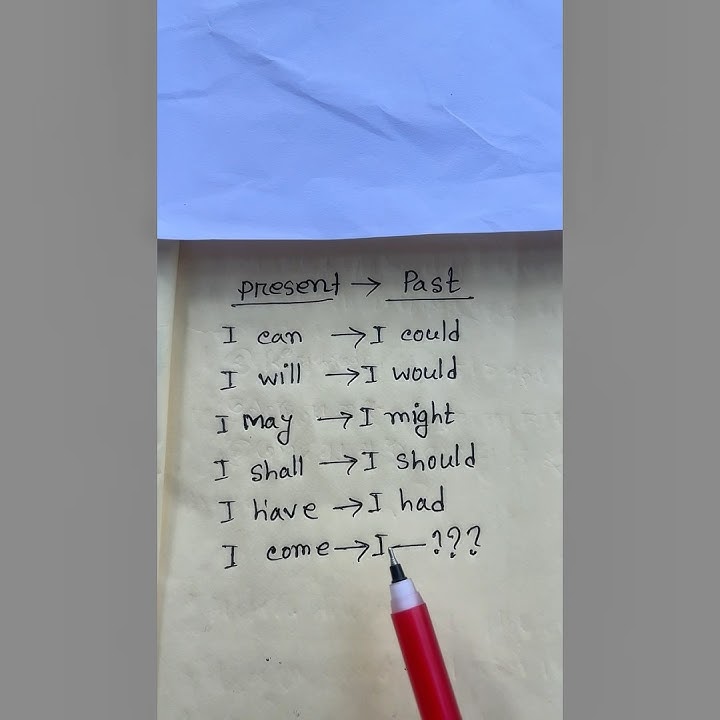 present → Past
I can → I could
I will → I would
I may → I might
I shall → I should
I have → I had
I come → I — ???